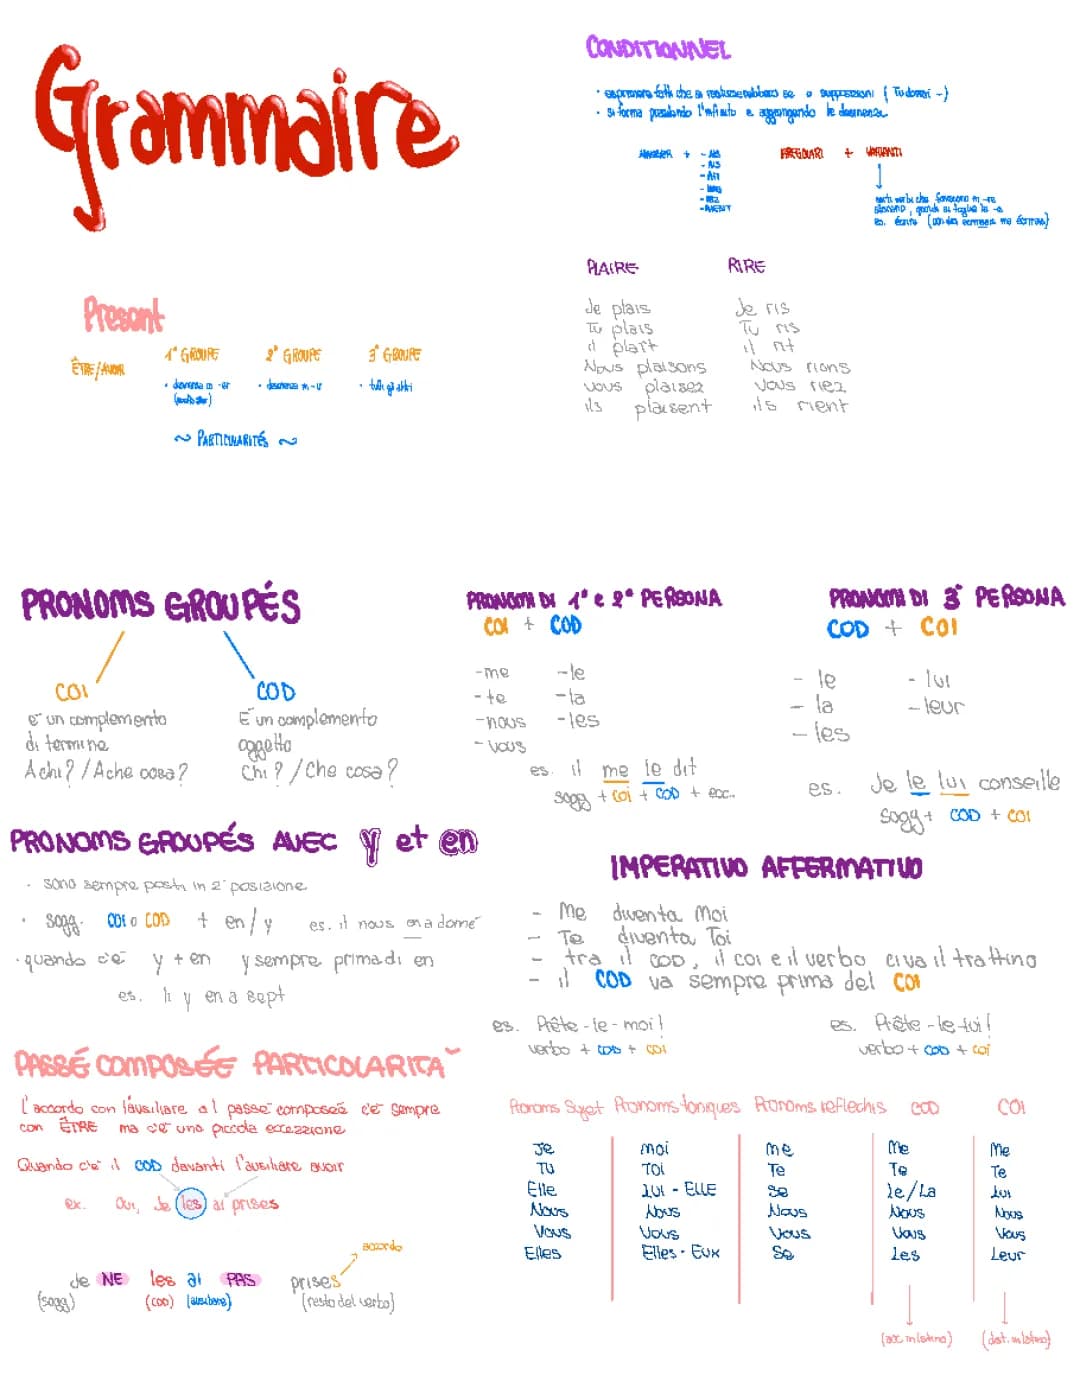 Grammaire
CONDITIONNEL
si forma prendendo l'infinito e aggiungendo le desinenze
- AIS
- AIS
- AIT
IRREGOLARI + VARIANTI
PLAIRE RIRE
Je plais Je ris
Tu plais Tu ris
il plaît il rit
Nous plaisons Nous rions
vous plaisez vous riez
ils plaisent ils rient
Present
ÊTRE/AVOIR
1° GROUPE 2° GROUPE 3° GROUPE
~ PARTICULARITÉS ~
PRONOMS GROUPÉS
COI COD
e' un complemento
di termine
A chi? / A che cosa?
E' un complemento
oggetto
Chi? / Che cosa?
PRONOMI DI 1° e 2° PERSONA
COI + COD
-me -le
-te -la
-nous -les
-vous
es. il me le dit
sogg + coi + COD + ecc..
PRONOMI DI 3° PERSONA
COD + COI
- le - lui
- la - leur
- les
es. Je le lui conseille
Sogg + COD + COI
PRONOMS GROUPÉS AVEC y et en
· sono sempre posti in 2° posizione
· sogg. COI o COD + en / y es. il nous en a donné
· quando c'e' y + en y sempre prima di en
es. Il y en a sept
IMPERATIVO AFFERMATIVO
- Me diventa Moi
- Te diventa Toi
- tra il COD, il coi e il verbo ci va il trattino
- il COD va sempre prima del COI
es. Prête-le-moi!
verbo + COD + COI
es. Prête-le-lui!
verbo + COD + COI
PASSÉ COMPOSÉE PARTICOLARITA'
L'accordo con l'ausiliare al passé composée c'e' sempre
con ÊTRE ma c'e' una piccola eccezzione
Quando c'e' il COD davanti l'ausiliare avoir
ex. Oui, Je les ai prises
accordo
Je NE les ai PAS prises
(sogg) (COD) (ausiliare) (resto del verbo)
Pronoms Sujet Pronoms toniques Pronoms réflechis COD COI
Je moi me Me Me
Tu Toi Te Te Te
Elle Lui - ELLE Se le/La Lui
Nous Nous Nous Nous Nous
Vous Vous Vous Vous Vous
Elles Elles - Eux Se Les Leur
(acc. in latino) (dat. in latino)